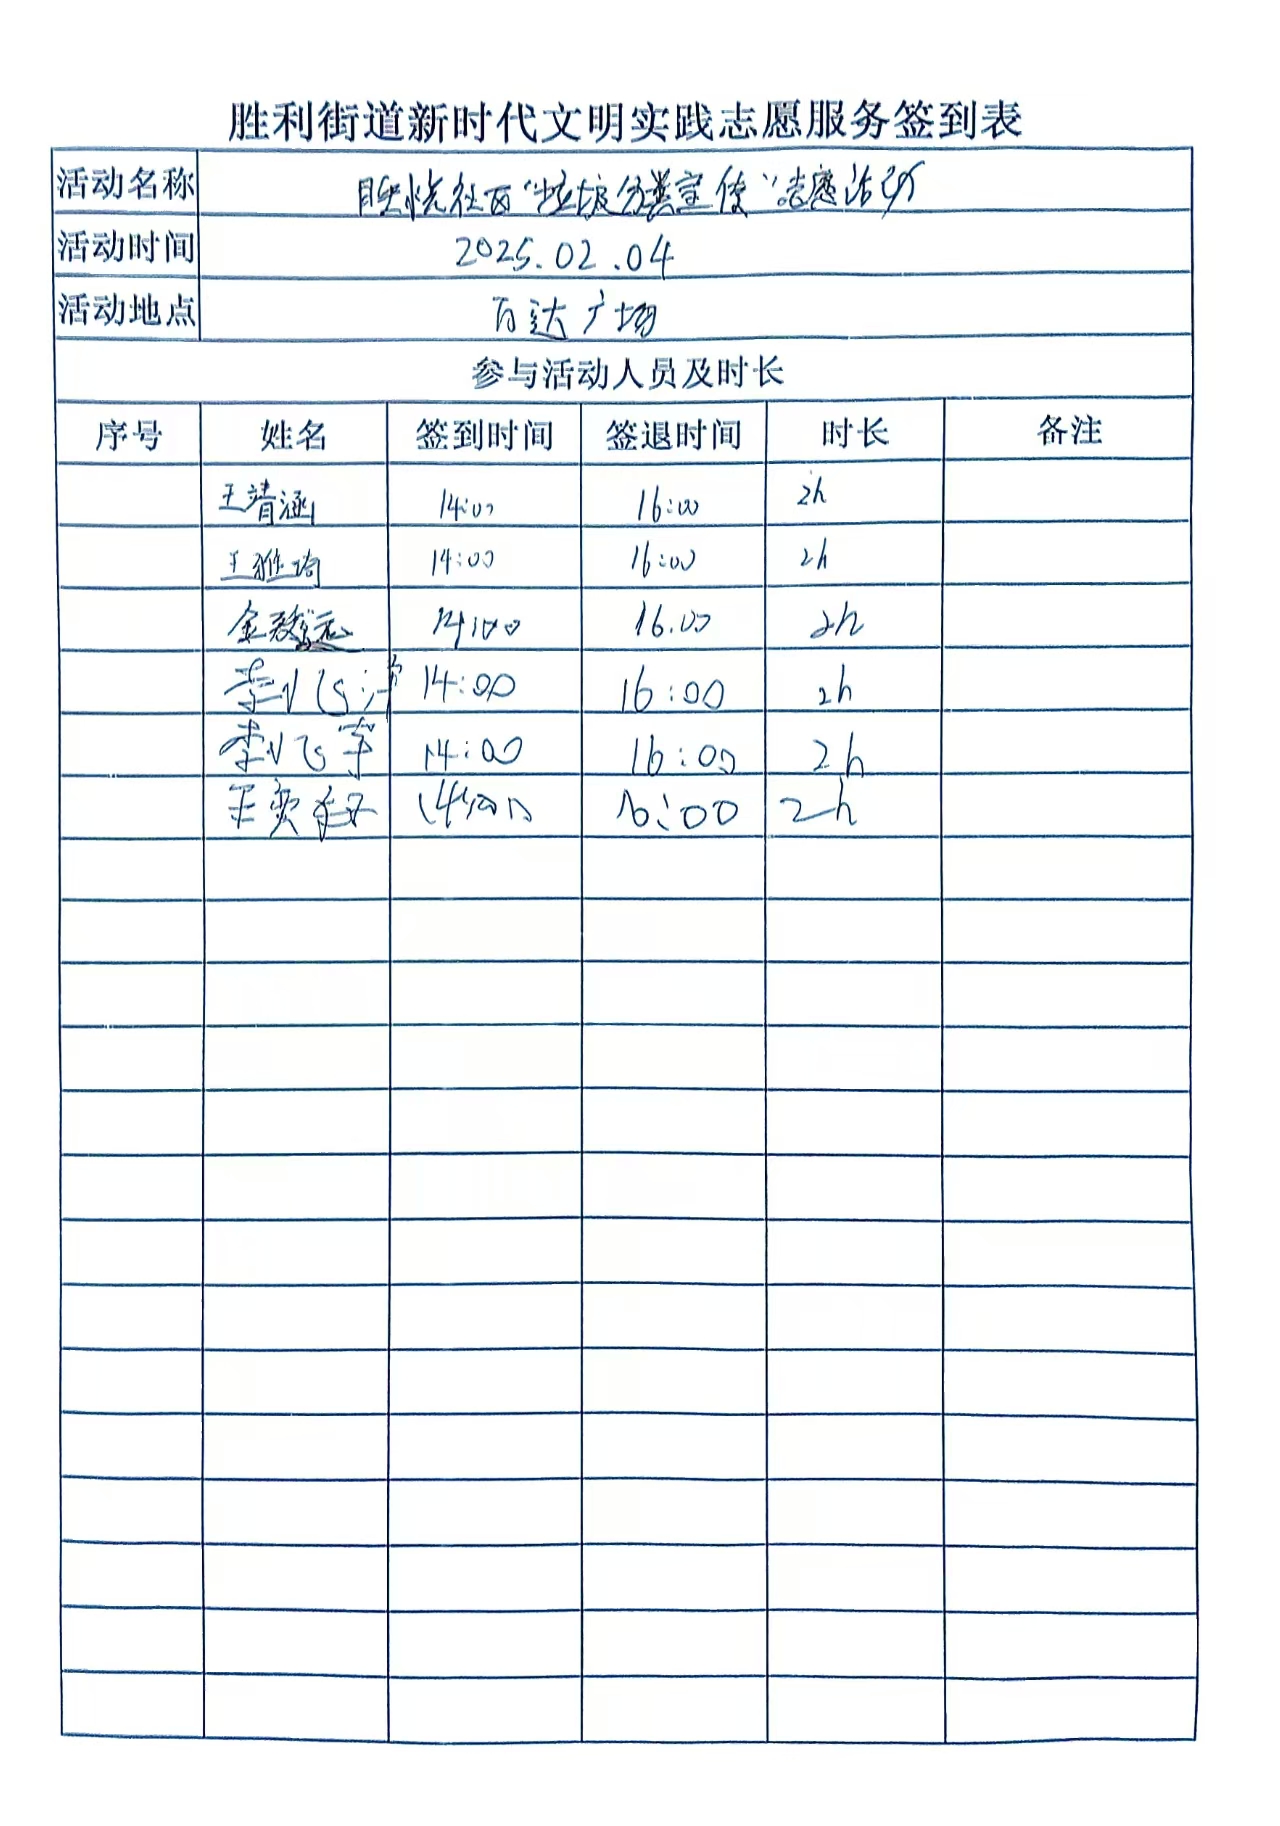 胜利街道新时代文明实践志愿服务签到表
活动名称 社区“垃圾分类宣传”志愿活动
活动时间 2025.02.04
活动地点 百达广场
参与活动人员及时长
序号 姓名 签到时间 签退时间 时长 备注
王靖涵 14:00 16:00 2h
王雅琦 14:00 16:00 2h
金致远 14:00 16:00 2h
李飞洋 14:00 16:00 2h
李飞宇 14:00 16:00 2h
王奕 14:00 16:00 2h